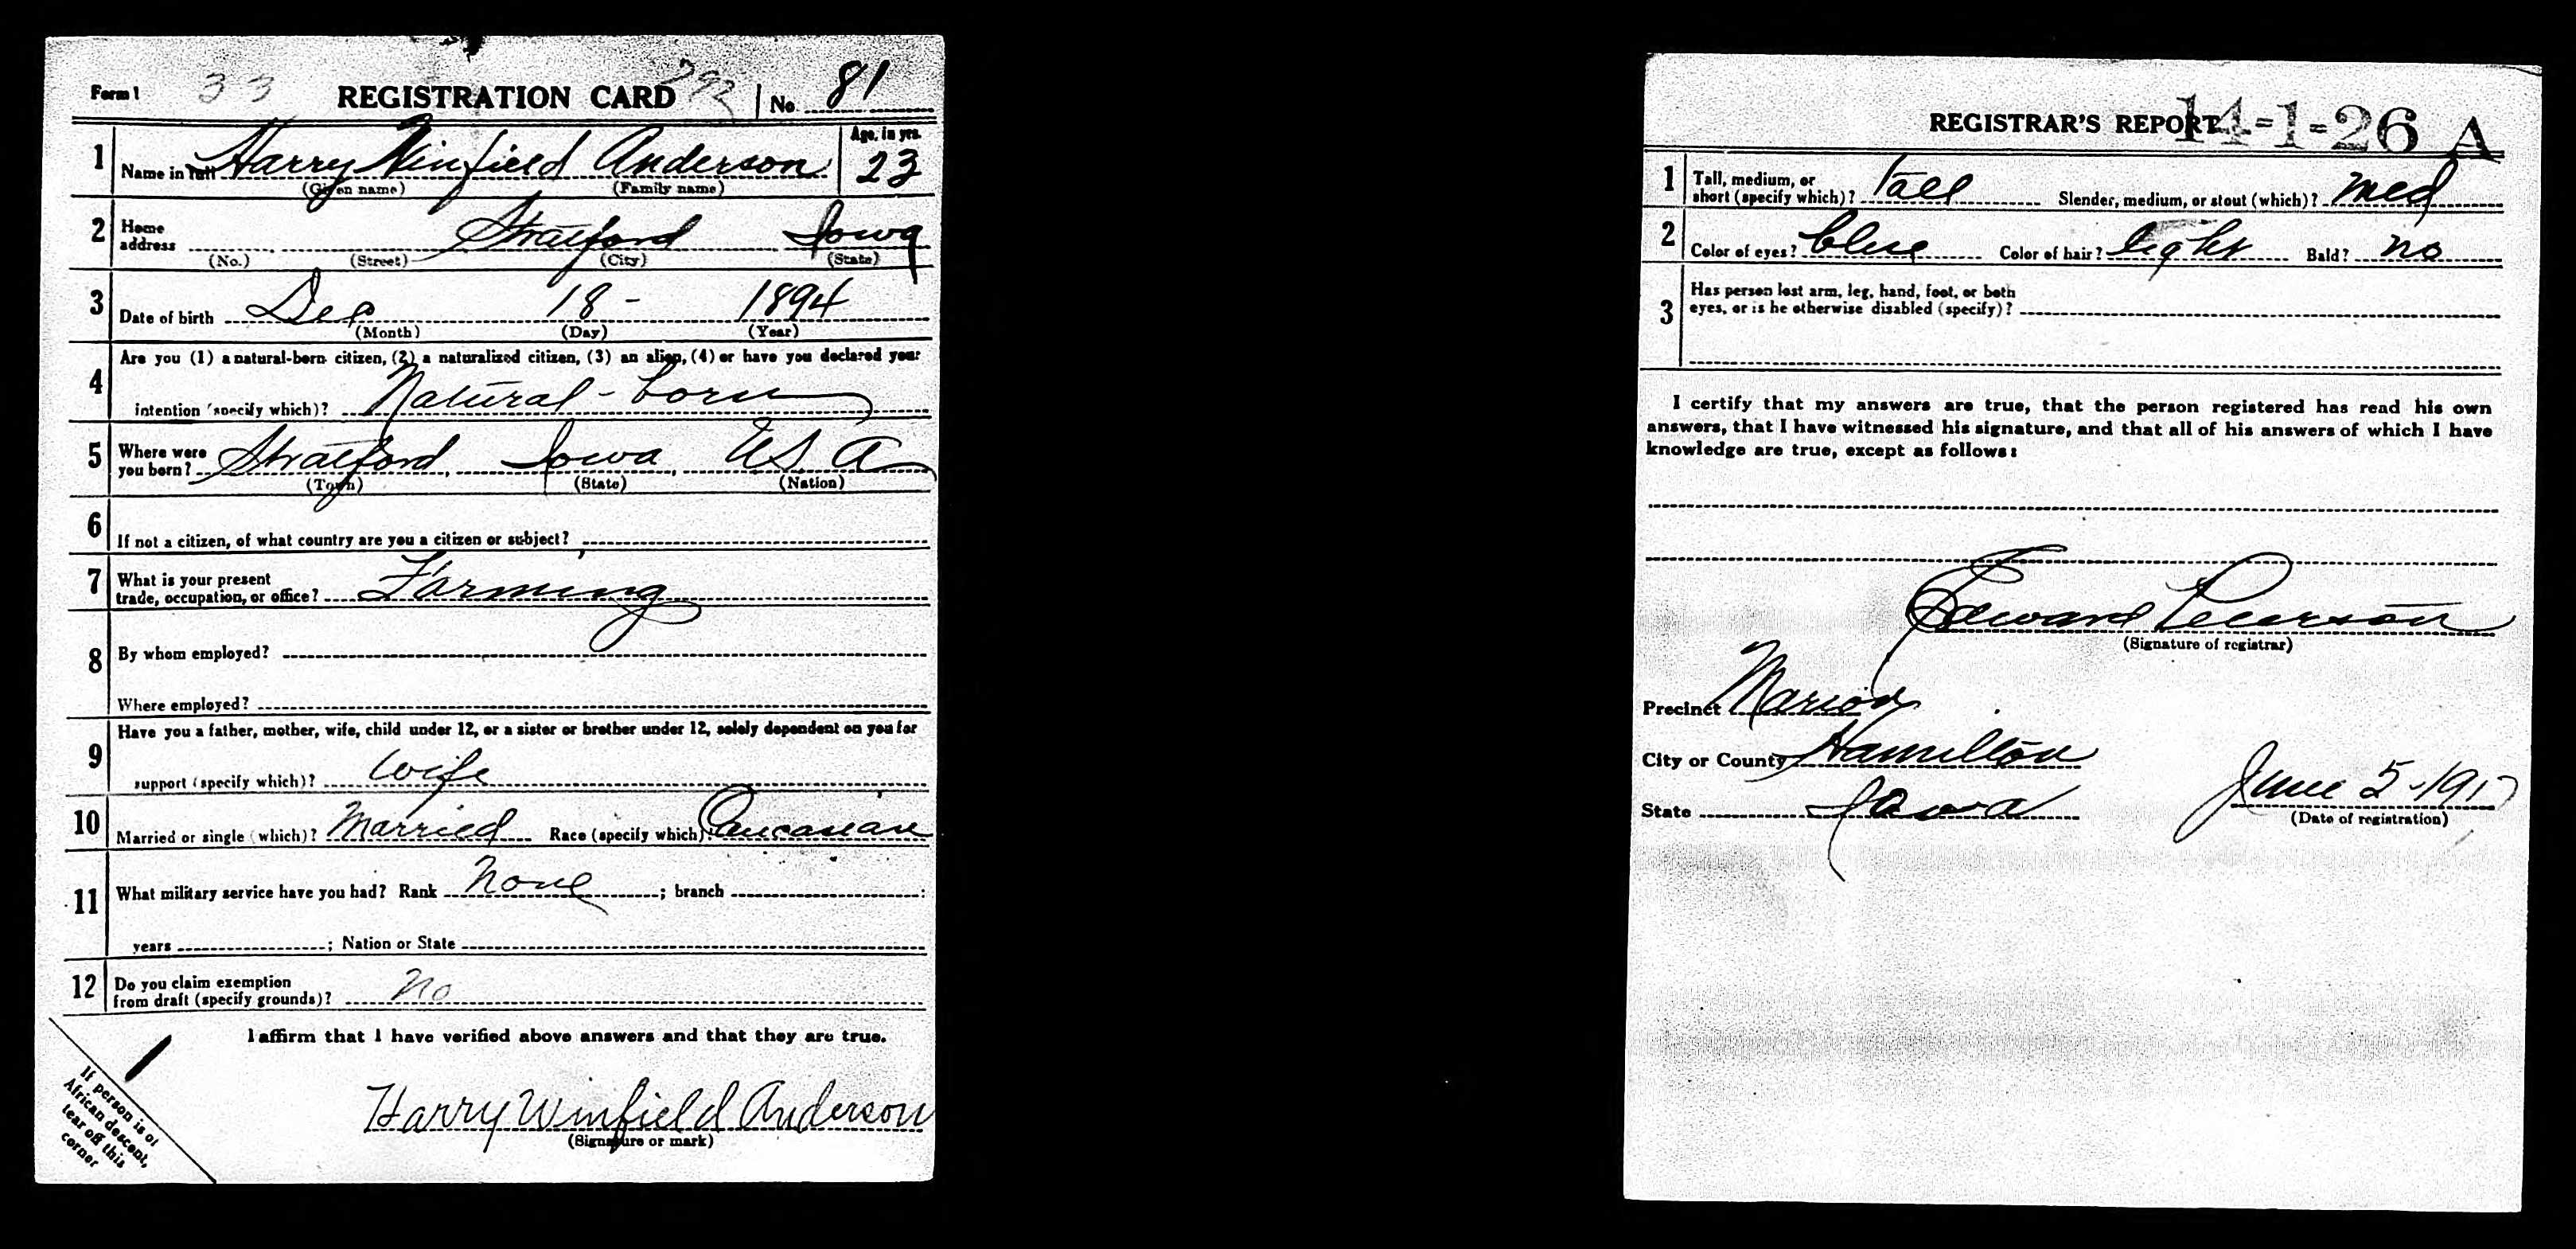 Form 1 33 REGISTRATION CARD 792 No. 81
1 Name in full Harry Winfield Anderson Age, in yrs. 23
(Given name) (Family name)
2 Home address Stratford Iowa
(No.) (Street) (City) (State)
3 Date of birth Dec 18 - 1894
(Month) (Day) (Year)
4 Are you (1) a natural-born citizen, (2) a naturalized citizen, (3) an alien, (4) or have you declared your
intention (specify which)? Natural-born
5 Where were you born? Stratford, Iowa, U.S.A
(Town) (State) (Nation)
6 If not a citizen, of what country are you a citizen or subject?
7 What is your present
trade, occupation, or office? Farming
8 By whom employed?
Where employed?
9 Have you a father, mother, wife, child under 12, or a sister or brother under 12, solely dependent on you for
support (specify which)? Wife
10 Married or single (which)? Married Race (specify which)? Caucasian
11 What military service have you had? Rank None ; branch :
years ; Nation or State
12 Do you claim exemption
from draft (specify grounds)? No
I affirm that I have verified above answers and that they are true.
Harry Winfield Anderson
(Signature or mark)
If person is of
African descent,
tear off this
corner
REGISTRAR'S REPORT 14-1-26 A
1 Tall, medium, or
short (specify which)? Tall Slender, medium, or stout (which)? Med
2 Color of eyes? blue Color of hair? light Bald? no
3 Has person lost arm, leg, hand, foot, or both
eyes, or is he otherwise disabled (specify)?
I certify that my answers are true, that the person registered has read his own
answers, that I have witnessed his signature, and that all of his answers of which I have
knowledge are true, except as follows:
Edward Peterson
(Signature of registrar)
Precinct Marion
City or County Hamilton
State Iowa
June 5-1917
(Date of registration)